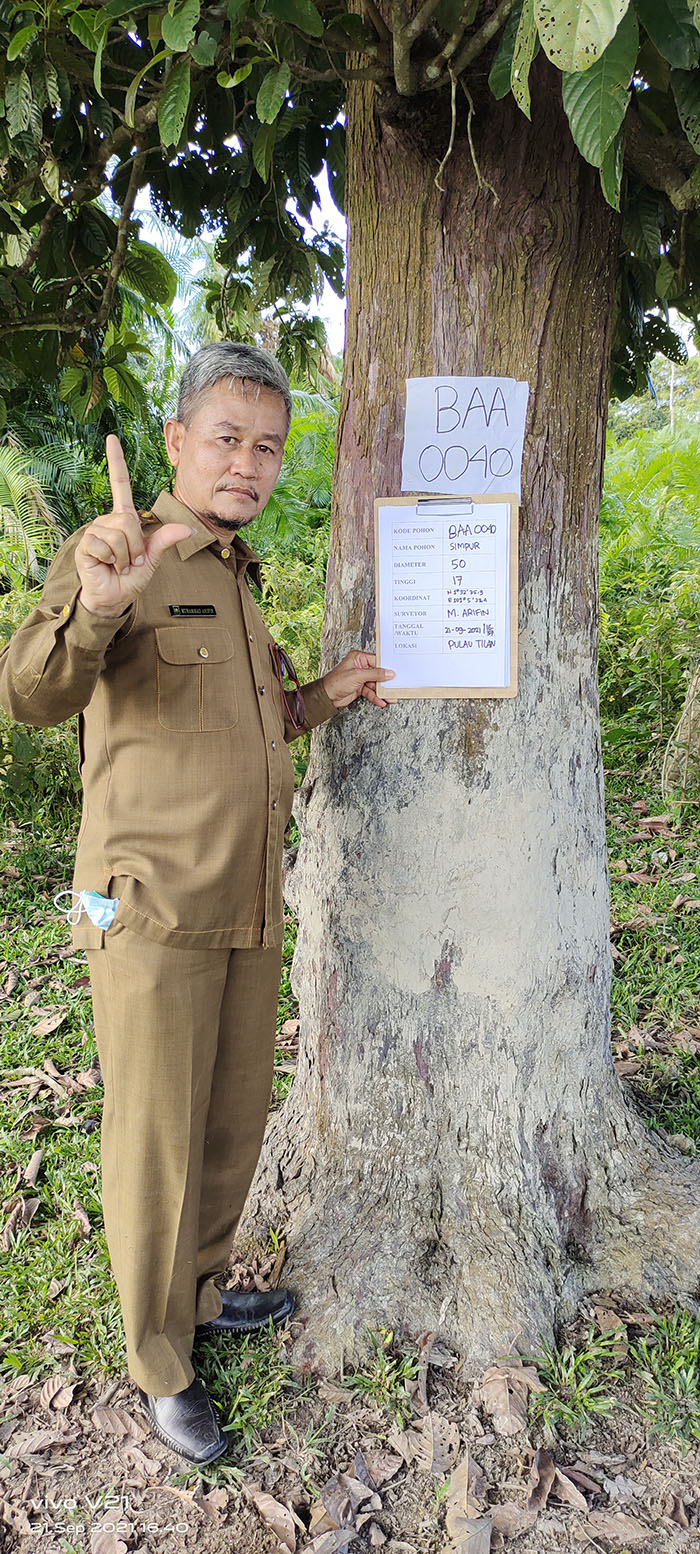 BAA
0040
KODE POHON BAA 0040
NAMA POHON SIMPUR
DIAMETER 50
TINGGI 17
KOORDINAT
SURVEYOR M. ARIFIN
TANGGAL 21-09-2021
/WAKTU
LOKASI PULAU TILAN
MUHAMMAD ARIFIN
vivo V21
21 Sep 2021 16.40